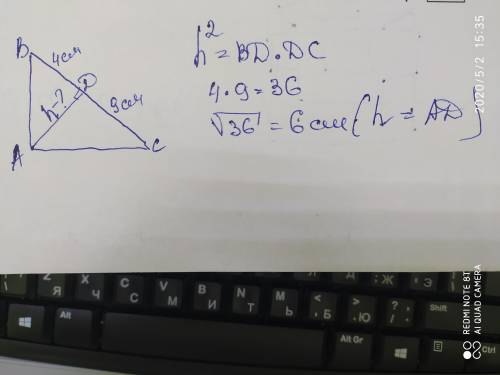 B 4см
D
h-? 9см
A C
h² = BD · DC
4 · 9 = 36
√36 = 6 см (h = AD)
2020/5/2 15:35
REDMI NOTE 8T
AI QUAD CAMERA
Z Я
X Ч
C С
V М
B И
N Т
M Ь
< , Б
> . Ю
? / .
Shift
Alt
Alt Gr
Ctrl